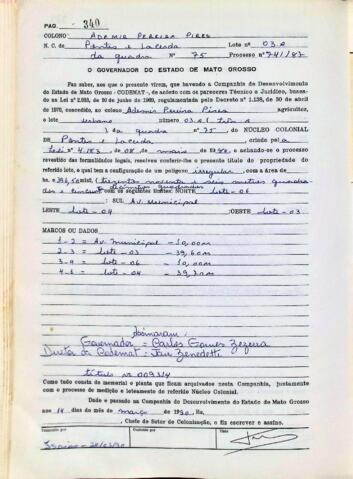 PAG. 340
COLONO: ADEMIR PEREIRA PIRES
N. C. de Pontes e Lacerda Lote nº 03.a
da quadra Nº 75 Processo nº 741/83
O GOVERNADOR DO ESTADO DE MATO GROSSO
Faz saber, aos que o presente virem, que havendo a Companhia de Desenvolvimento
do Estado de Mato Grosso - CODEMAT -, de acordo com os pareceres Técnico e Jurídico, baseados
na Lei nº 2.893, de 20 de junho de 1969, regulamentada pelo Decreto nº 1.138, de 30 de abril
de 1970, concedido, ao colono Ademir Pereira Pires agricultor,
o lote urbano 03.a (três a
) da quadra nº 75. do NÚCLEO COLONIAL
DE Pontes e Lacerda, criado pela
Lei nº 4.183 de 08 de maio de 1980, e achando-se o processo
revestido das formalidades legais, resolveu conferir-lhe o presente título de propriedade do
referido lote, o qual tem a configuração de um polígono irregular, com a área de
396,50 mts2, (trezentos noventa e seis metros quadra-
dos e cincoenta decímetros quadrados) com os seguintes limites: NORTE Lote-06
: SUL Av. Municipal
LESTE Lote-04 :OESTE Lote-03
MARCOS OU DADOS
1-2 = Av. municipal - 10,00m
2-3 = lote - 03 - 39,60m
3-4 = lote - 06 - 10,00m
4-1 = lote - 04 - 39,70m
Assinaram:
Governador = Carlos Gomes Bezerra
Diretor da Codemat: Jair Benedetti
título nº 009314
Como tudo consta do memorial e planta que ficam arquivados nesta Companhia, juntamente
com o processo de medição e loteamento do referido Núcleo Colonial.
Dado e passado na Companhia de Desenvolvimento do Estado de Mato Grosso
aos 14 dias do mês de março de 1990. Eu,
, Chefe do Setor de Colonização, o fiz escrever e assino.
Visto